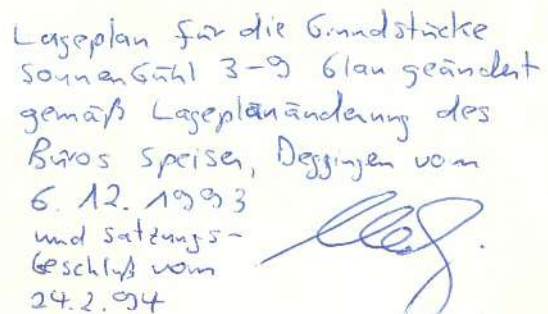 Lageplan für die Grundstücke
Sonnenbühl 3-9 blau geändert
gemäß Lageplanänderung des
Büros Speiser, Deggingen vom
6. 12. 1993
und Satzungs-
beschluß vom
24.2.94